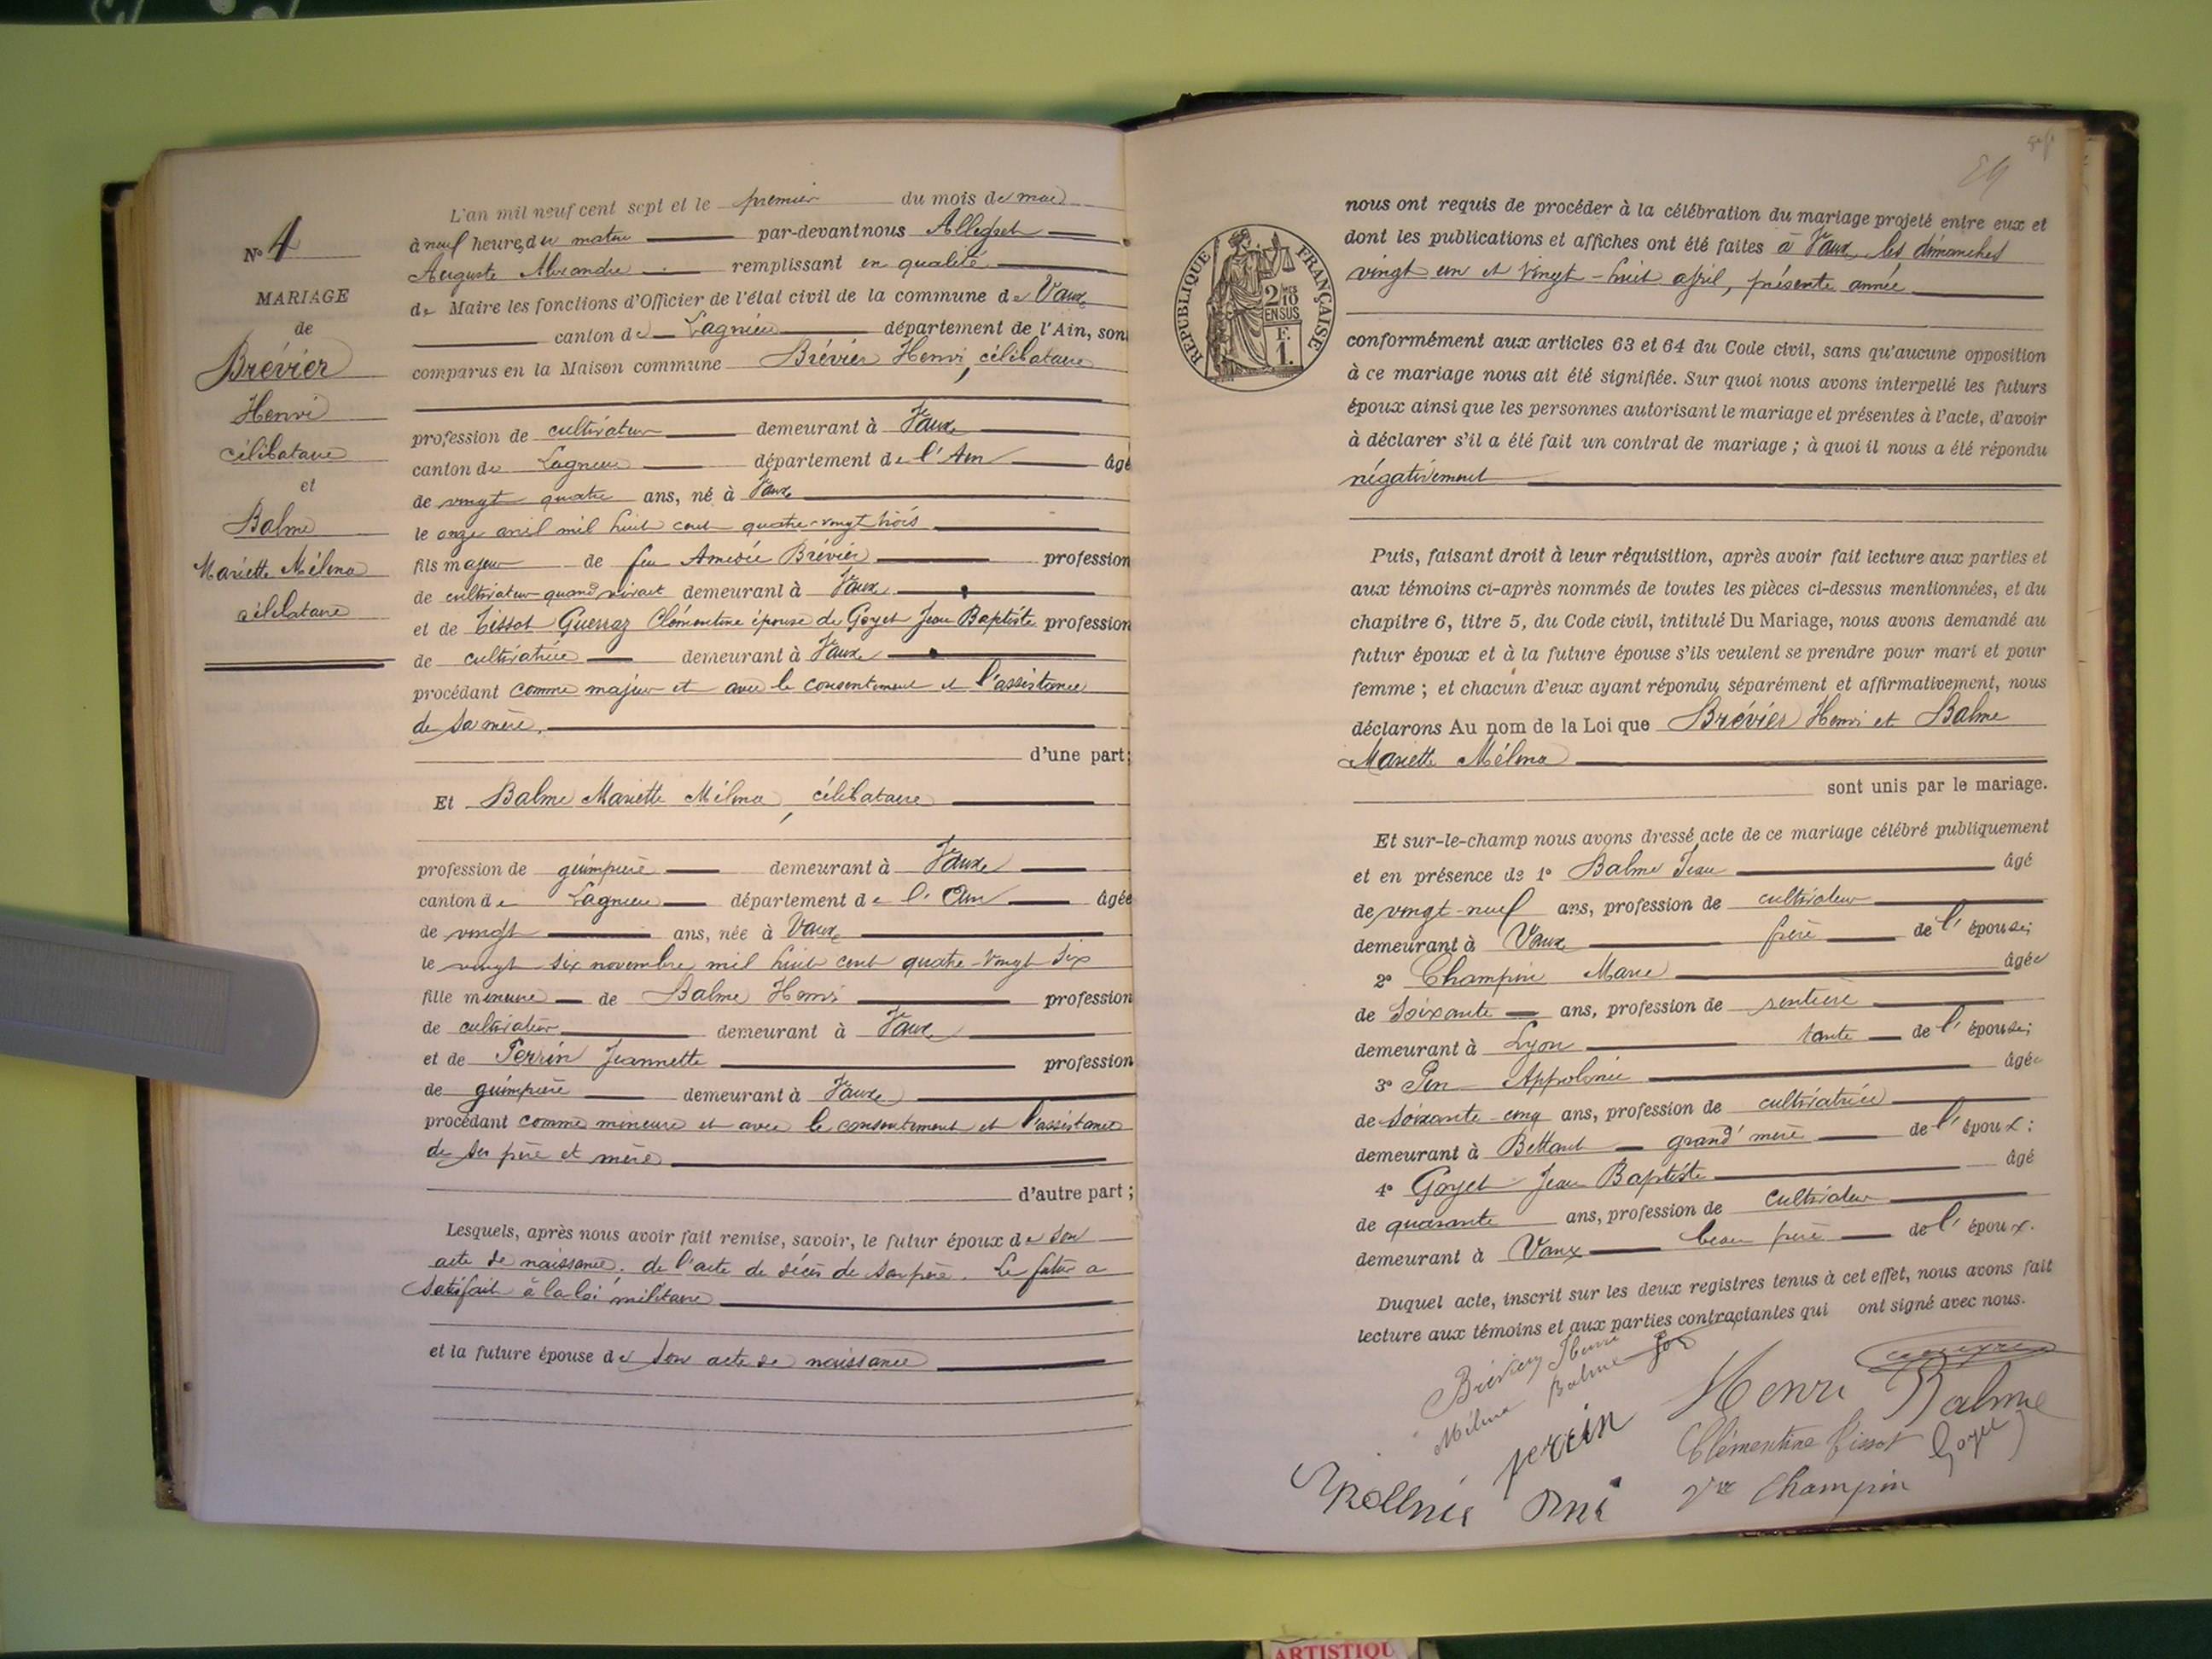 N° 4
MARIAGE
de
Brévier
Henri
célibataire
et
Balme
Mariette Mélina
célibataire
L'an mil neuf cent sept et le premier du mois de mai
à neuf heures du matin par-devant nous Allegret
Auguste Alexandre remplissant en qualité
de Maire les fonctions d'Officier de l'état civil de la commune de Vaux
canton de Lagnieu département de l'Ain, son
comparus en la Maison commune Brévier Henri, célibataire
profession de cultivateur demeurant à Vaux
canton de Lagnieu département de l'Ain âgé
de vingt quatre ans, né à Vaux
le onze avril mil huit cent quatre-vingt trois
fils majeur de feu Amédée Brévier profession
de cultivateur quand vivait demeurant à Vaux
et de Tissot Guerraz Clémentine épouse de Goyet Jean Baptiste profession
de cultivatrice demeurant à Vaux
procédant comme majeur et avec le consentement et l'assistance
de sa mère.
d'une part;
Et Balme Mariette Mélina, célibataire
profession de guimpière demeurant à Vaux
canton de Lagnieu département de l'Ain âgée
de vingt ans, née à Vaux
le vingt six novembre mil huit cent quatre-vingt six
fille mineure de Balme Henri profession
de cultivateur demeurant à Vaux
et de Perrin Jeannette profession
de guimpière demeurant à Vaux
procédant comme mineure et avec le consentement et l'assistance
de ses père et mère
d'autre part;
Lesquels, après nous avoir fait remise, savoir, le futur époux de son
acte de naissance. de l'acte de décès de son père. Le futur a
satisfait à la loi militaire
et la future épouse de son acte de naissance
RÉPUBLIQUE FRANÇAISE
2/10
EN SUS
F.
1.
nous ont requis de procéder à la célébration du mariage projeté entre eux et
dont les publications et affiches ont été faites à Vaux les dimanches
vingt un et vingt-huit avril, présente année
conformément aux articles 63 et 64 du Code civil, sans qu'aucune opposition
à ce mariage nous ait été signifiée. Sur quoi nous avons interpellé les futurs
époux ainsi que les personnes autorisant le mariage et présentes à l'acte, d'avoir
à déclarer s'il a été fait un contrat de mariage; à quoi il nous a été répondu
négativement
Puis, faisant droit à leur réquisition, après avoir fait lecture aux parties et
aux témoins ci-après nommés de toutes les pièces ci-dessus mentionnées, et du
chapitre 6, titre 5, du Code civil, intitulé Du Mariage, nous avons demandé au
futur époux et à la future épouse s'ils veulent se prendre pour mari et pour
femme; et chacun d'eux ayant répondu séparément et affirmativement, nous
déclarons Au nom de la Loi que Brévier Henri et Balme
Mariette Mélina
sont unis par le mariage.
Et sur-le-champ nous avons dressé acte de ce mariage célébré publiquement
et en présence de 1° Balme Jean âgé
de vingt-neuf ans, profession de cultivateur
demeurant à Vaux frère de l'épouse;
2° Champin Marie âgée
de soixante ans, profession de rentière
demeurant à Lyon tante de l'épouse;
3° Pin Appolonie âgée
de soixante-cinq ans, profession de cultivatrice
demeurant à Bettant grand'mère de l'époux;
4° Goyet Jean Baptiste âgé
de quarante ans, profession de cultivateur
demeurant à Vaux beau père de l'époux.
Duquel acte, inscrit sur les deux registres tenus à cet effet, nous avons fait
lecture aux témoins et aux parties contractantes qui ont signé avec nous.
Brévier Henri
Mélina Balme
Henri Balme
perrin
Clémentine Tissot
Goyet
Vve Champin
ARTISTIQU